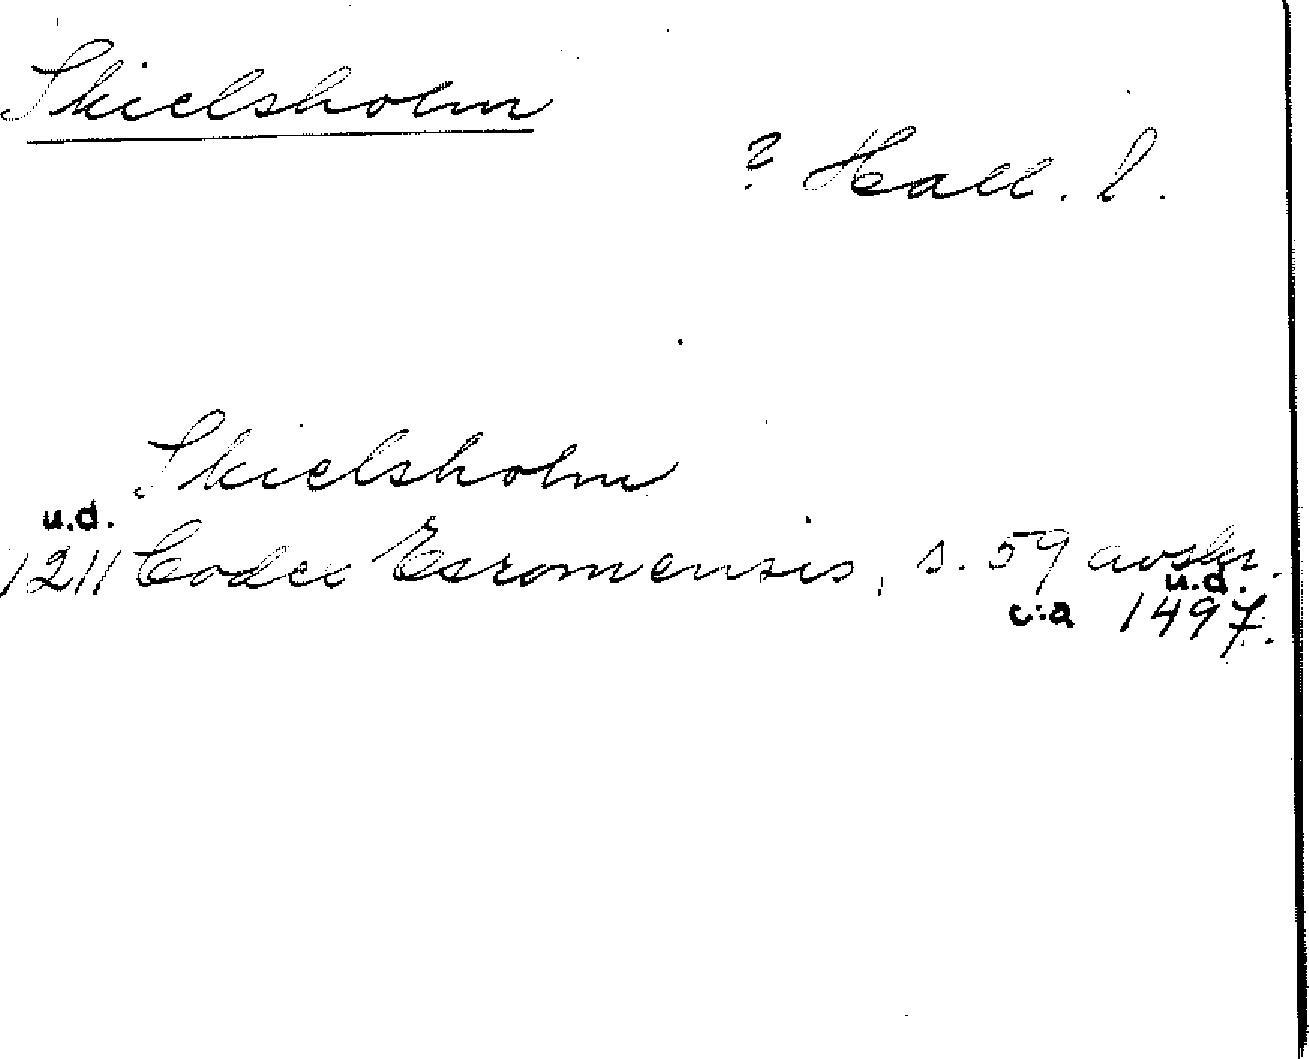 Skielsholm
? Hall. l.
Skielsholm
u.d.
1211 Codex Esromensis, s. 59 avskr.
u.d.
c:a 1497.